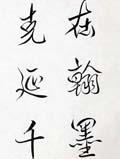 在翰墨
克延千